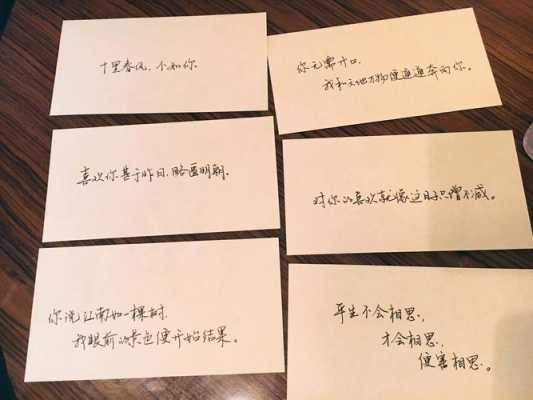 十里春风,不如你.
你无需开口,
我和天地万物便通通奔向你。
喜欢你甚于昨日,略匮明朝。
对你的喜欢就像这日子只增不减。
你说江南如一棵树,
我眼前的景色便开始结果。
平生不会相思,
才会相思,
便害相思。